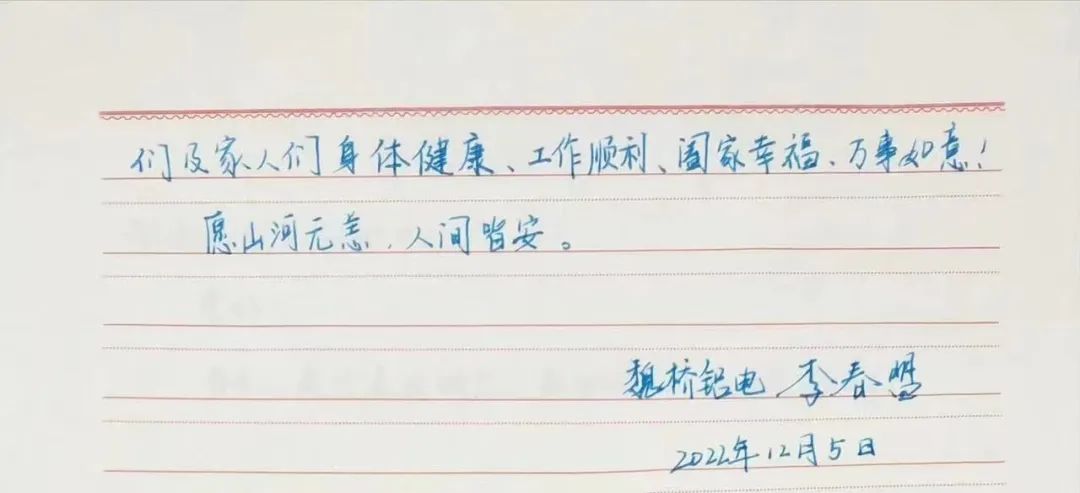 们及家人们身体健康、工作顺利、阖家幸福、万事如意！
愿山河无恙，人间皆安。
魏桥铝电 李春盟
2022年12月5日